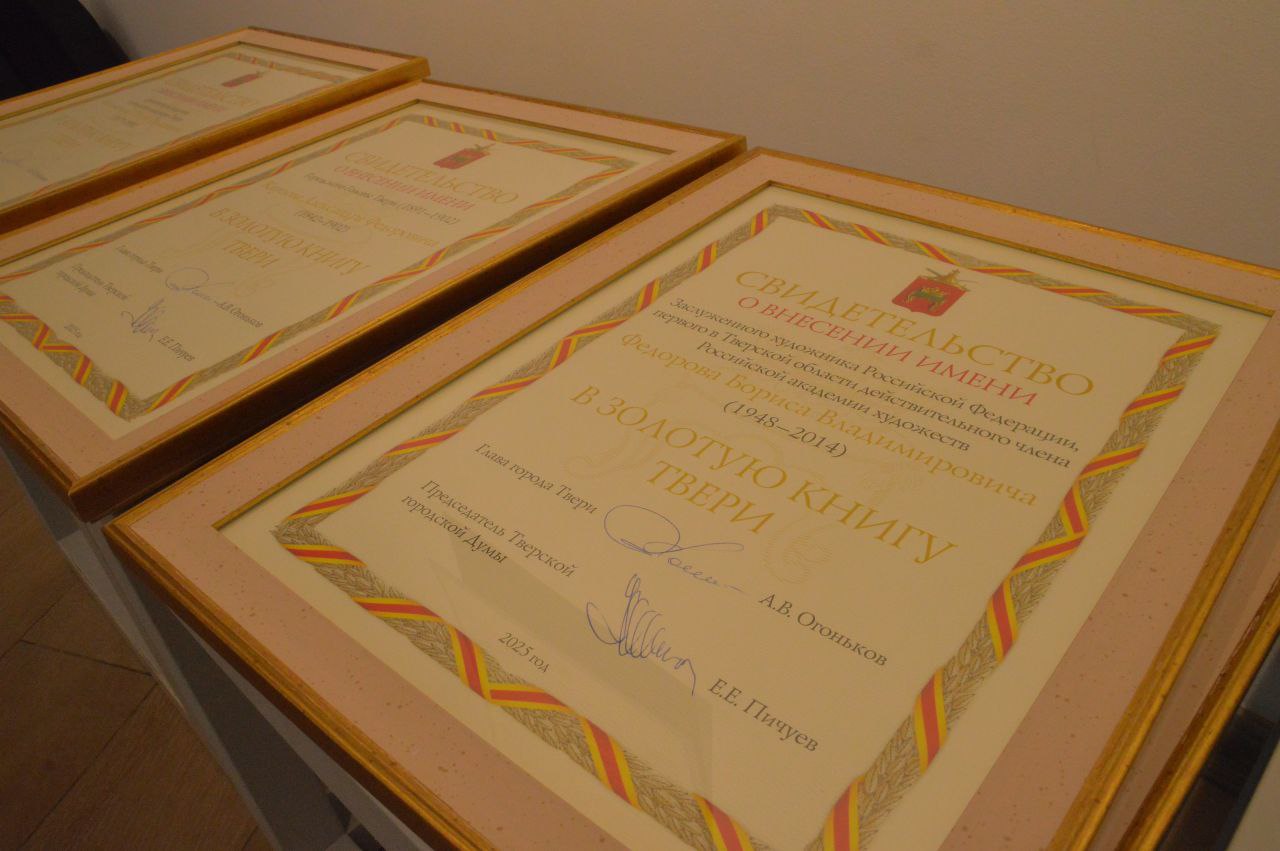 СВИДЕТЕЛЬСТВО
О ВНЕСЕНИИ ИМЕНИ
Заслуженного художника Российской Федерации,
первого в Тверской области действительного члена
Российской академии художеств
Федорова Бориса Владимировича
(1948–2014)
В ЗОЛОТУЮ КНИГУ
ТВЕРИ
Глава города Твери
А.В. Огоньков
Председатель Тверской
городской Думы
Е.Е. Пичуев
2025 год
СВИДЕТЕЛЬСТВО
О ВНЕСЕНИИ ИМЕНИ
Городского Головы Твери (1891–1902)
Александра Федоровича
В ЗОЛОТУЮ КНИГУ
ТВЕРИ
Глава города Твери
А.В. Огоньков
Председатель Тверской
городской Думы
Е.Е. Пичуев